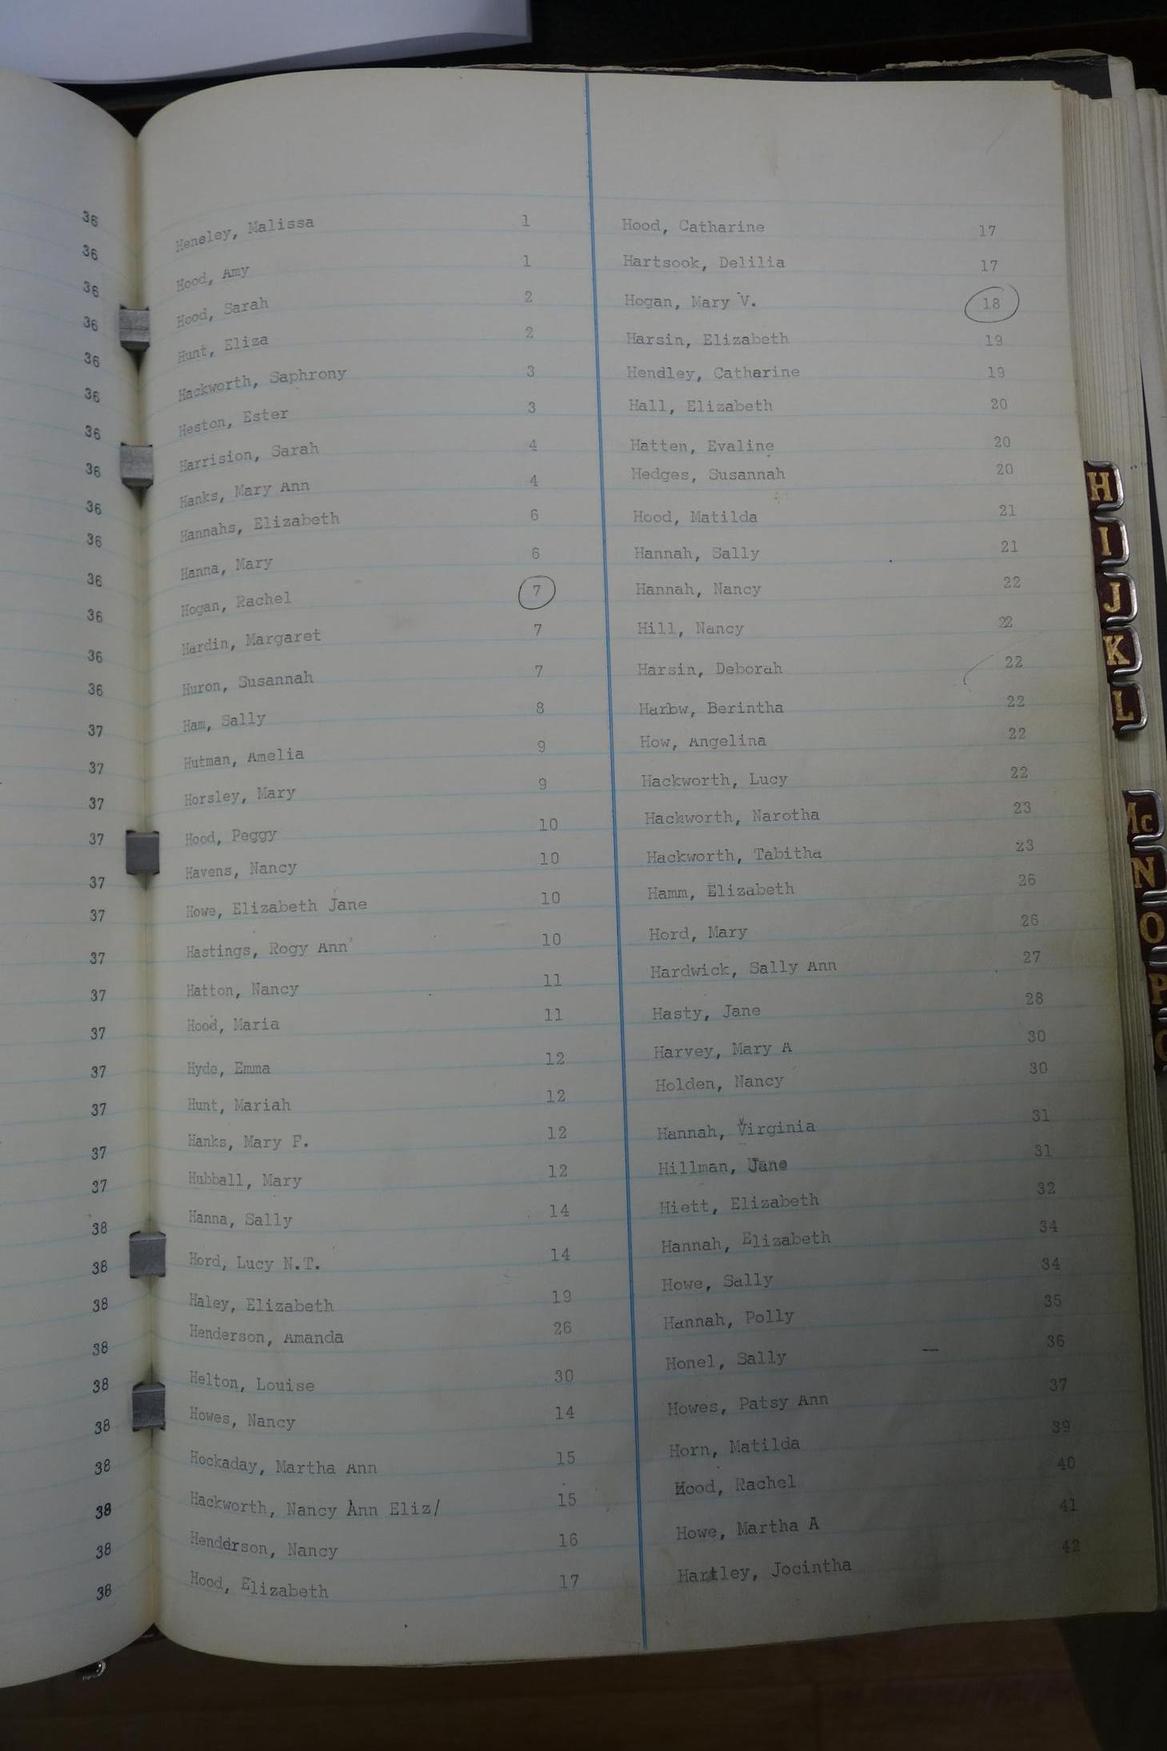 36
36
36
36
36
36
36
36
36
36
36
36
36
36
37
37
37
37
37
37
37
37
37
37
37
37
37
38
38
38
38
38
38
38
38
38
38
Heneley, Malissa 1
Hood, Amy 1
Hood, Sarah 2
Hunt, Eliza 2
Hackworth, Saphrony 3
Heston, Ester 3
Harrision, Sarah 4
Hanks, Mary Ann 4
Hannahs, Elizabeth 6
Hanna, Mary 6
Hogan, Rachel 7
Hardin, Margaret 7
Huron, Susannah 7
Ham, Sally 8
Hutman, Amelia 9
Horsley, Mary 9
Hood, Peggy 10
Havens, Nancy 10
Howe, Elizabeth Jane 10
Hastings, Rogy Ann 10
Hatton, Nancy 11
Hood, Maria 11
Hyde, Emma 12
Hunt, Mariah 12
Hanks, Mary F. 12
Hubball, Mary 12
Hanna, Sally 14
Hord, Lucy N.T. 14
Haley, Elizabeth 19
Henderson, Amanda 26
Helton, Louise 30
Howes, Nancy 14
Hockaday, Martha Ann 15
Hackworth, Nancy Ann Eliz/ 15
Henderson, Nancy 16
Hood, Elizabeth 17
Hood, Catharine 17
Hartsook, Delilia 17
Hogan, Mary V. 18
Harsin, Elizabeth 19
Hendley, Catharine 19
Hall, Elizabeth 20
Hatten, Evaline 20
Hedges, Susannah 20
Hood, Matilda 21
Hannah, Sally 21
Hannah, Nancy 22
Hill, Nancy 22
Harsin, Deborah 22
Harbw, Berintha 22
How, Angelina 22
Hackworth, Lucy 22
Hackworth, Narotha 23
Hackworth, Tabitha 23
Hamm, Elizabeth 26
Hord, Mary 26
Hardwick, Sally Ann 27
Hasty, Jane 28
Harvey, Mary A 30
Holden, Nancy 30
Hannah, Virginia 31
Hillman, Jane 31
Hiett, Elizabeth 32
Hannah, Elizabeth 34
Howe, Sally 34
Hannah, Polly 35
Honel, Sally 36
Howes, Patsy Ann 37
Horn, Matilda 39
Hood, Rachel 40
Howe, Martha A 41
Hartley, Jocintha 42
H
I
J
K
L
Mc
N
O
P